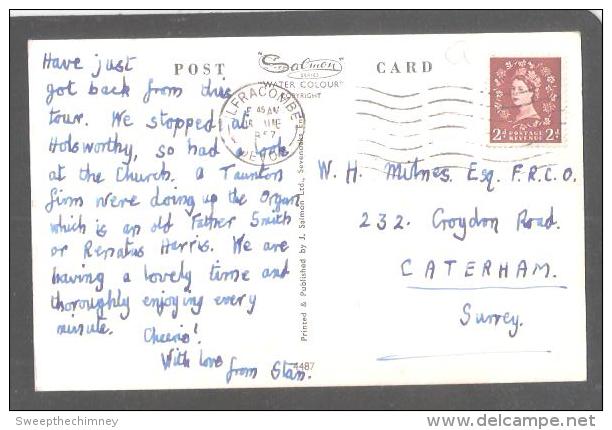 POST "Salmon SERIES CARD
"WATER COLOUR"
COPYRIGHT
Have just
got back from this
tour. We stopped at
Holsworthy, so had a look
at the Church. A Taunton
firm were doing up the Organ
which is an old Father Smith
or Renatus Harris. We are
having a lovely time and
thoroughly enjoying every
minute.
Cheerio!
With love
from Stan.
ILFRACOMBE
45 AM
DEVON
2D POSTAGE REVENUE 2D
W. H. Milnes. Esq. F.R.C.O.
232. Croydon Road.
CATERHAM.
Surrey.
Printed & Published by J. Salmon Ltd., Sevenoaks
4487
Sweepthechimney
delcampe.net